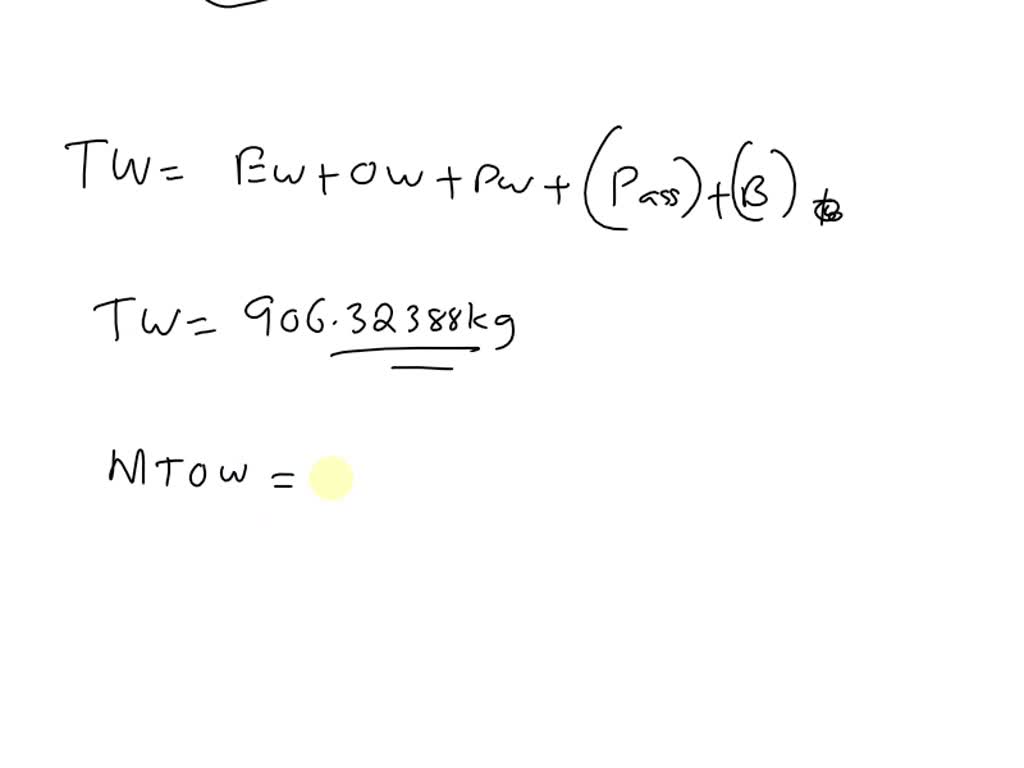 TW = EW + OW + PW + (Pass) + (B)
TW = 906.32388kg
MTOW =